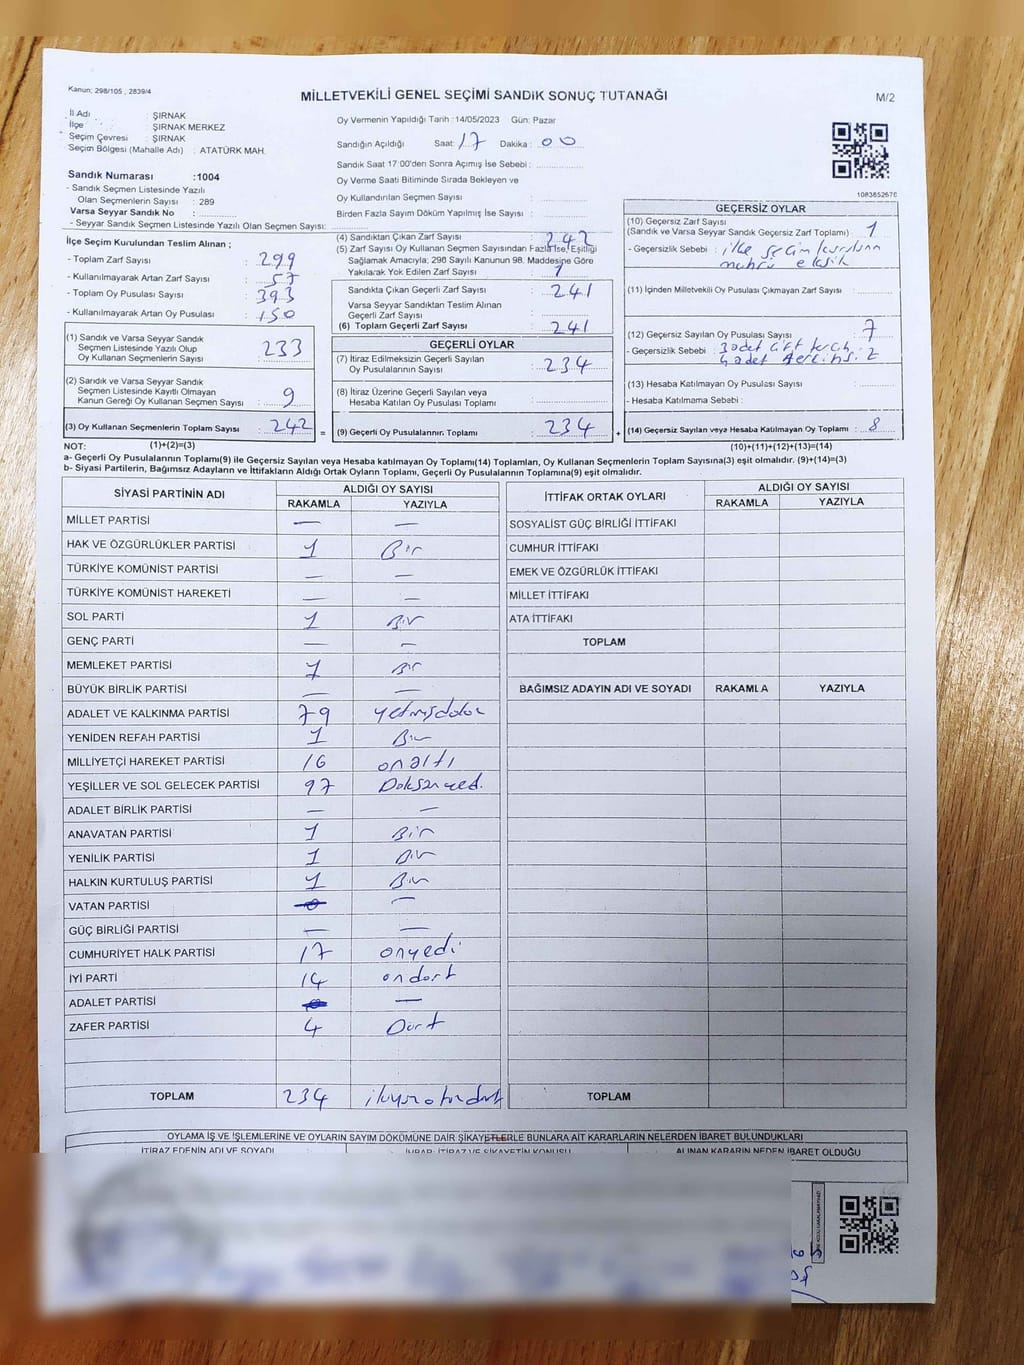 Kanun; 298/105 , 2839/4
MİLLETVEKİLİ GENEL SEÇİMİ SANDIK SONUÇ TUTANAĞI
M/2
İl Adı : ŞIRNAK
İlçe : ŞIRNAK MERKEZ
Seçim Çevresi : ŞIRNAK
Seçim Bölgesi (Mahalle Adı) : ATATÜRK MAH.
Oy Vermenin Yapıldığı Tarih :14/05/2023 Gün: Pazar
Sandığın Açıldığı Saat: 17 Dakika: 00
Sandık Saat 17:00'den Sonra Açımış İse Sebebi :
Oy Verme Saati Bitiminde Sırada Bekleyen ve
Oy Kullandırılan Seçmen Sayısı :
Birden Fazla Sayım Döküm Yapılmış İse Sayısı :
Sandık Numarası :1004
- Sandık Seçmen Listesinde Yazılı
Olan Seçmenlerin Sayısı : 289
Varsa Seyyar Sandık No :
- Seyyar Sandık Seçmen Listesinde Yazılı Olan Seçmen Sayısı:
İlçe Seçim Kurulundan Teslim Alınan ;
- Toplam Zarf Sayısı : 299
- Kullanılmayarak Artan Zarf Sayısı : 57
- Toplam Oy Pusulası Sayısı : 393
- Kullanılmayarak Artan Oy Pusulası : 150
(1) Sandık ve Varsa Seyyar Sandık
Seçmen Listesinde Yazılı Olup
Oy Kullanan Seçmenlerin Sayısı : 233
(2) Sandık ve Varsa Seyyar Sandık
Seçmen Listesinde Kayıtlı Olmayan
Kanun Gereği Oy Kullanan Seçmen Sayısı : 9
(3) Oy Kullanan Seçmenlerin Toplam Sayısı : 242 =
(4) Sandıktan Çıkan Zarf Sayısı : 242
(5) Zarf Sayısı Oy Kullanan Seçmen Sayısından Fazla İse, Eşitliği
Sağlamak Amacıyla; 298 Sayılı Kanunun 98. Maddesine Göre
Yakılarak Yok Edilen Zarf Sayısı : 1
Sandıkta Çıkan Geçerli Zarf Sayısı : 241
Varsa Seyyar Sandıktan Teslim Alınan
Geçerli Zarf Sayısı :
(6) Toplam Geçerli Zarf Sayısı : 241
GEÇERLİ OYLAR
(7) İtiraz Edilmeksizin Geçerli Sayılan
Oy Pusulalarının Sayısı : 234
(8) İtiraz Üzerine Geçerli Sayılan veya
Hesaba Katılan Oy Pusulası Toplamı :
(9) Geçerli Oy Pusulalarının Toplamı : 234 +
GEÇERSİZ OYLAR
(10) Geçersiz Zarf Sayısı
(Sandık ve Varsa Seyyar Sandık Geçersiz Zarf Toplamı) : 1
- Geçersizlik Sebebi : ilçe seçim kurulunun
mührü eksik
(11) İçinden Milletvekili Oy Pusulası Çıkmayan Zarf Sayısı :
(12) Geçersiz Sayılan Oy Pusulası Sayısı : 7
- Geçersizlik Sebebi : 3 adet çift tercih
4 adet tercihsiz
(13) Hesaba Katılmayan Oy Pusulası Sayısı :
- Hesaba Katılmama Sebebi :
(14) Geçersiz Sayılan veya Hesaba Katılmayan Oy Toplamı : 8
NOT: (1)+(2)=(3) (10)+(11)+(12)+(13)=(14)
a- Geçerli Oy Pusulalarının Toplamı(9) ile Geçersiz Sayılan veya Hesaba katılmayan Oy Toplamı(14) Toplamları, Oy Kullanan Seçmenlerin Toplam Sayısına(3) eşit olmalıdır. (9)+(14)=(3)
b- Siyasi Partilerin, Bağımsız Adayların ve İttifakların Aldığı Ortak Oyların Toplamı, Geçerli Oy Pusulalarının Toplamına(9) eşit olmalıdır.
SİYASİ PARTİNİN ADI ALDIĞI OY SAYISI
RAKAMLA YAZIYLA
MİLLET PARTİSİ — —
HAK VE ÖZGÜRLÜKLER PARTİSİ 1 Bir
TÜRKİYE KOMÜNİST PARTİSİ — —
TÜRKİYE KOMÜNİST HAREKETİ — —
SOL PARTİ 1 Bir
GENÇ PARTİ — —
MEMLEKET PARTİSİ 1 Bir
BÜYÜK BİRLİK PARTİSİ — —
ADALET VE KALKINMA PARTİSİ 79 yetmişdokuz
YENİDEN REFAH PARTİSİ 1 Bir
MİLLİYETÇİ HAREKET PARTİSİ 16 onaltı
YEŞİLLER VE SOL GELECEK PARTİSİ 97 Doksanyedi
ADALET BİRLİK PARTİSİ — —
ANAVATAN PARTİSİ 1 Bir
YENİLİK PARTİSİ 1 Bir
HALKIN KURTULUŞ PARTİSİ 1 Bir
VATAN PARTİSİ —
GÜÇ BİRLİĞİ PARTİSİ — —
CUMHURİYET HALK PARTİSİ 17 onyedi
İYİ PARTİ 14 ondört
ADALET PARTİSİ —
ZAFER PARTİSİ 4 Dört
TOPLAM 234 ikiyüzotuzdört
İTTİFAK ORTAK OYLARI ALDIĞI OY SAYISI
RAKAMLA YAZIYLA
SOSYALİST GÜÇ BİRLİĞİ İTTİFAKI
CUMHUR İTTİFAKI
EMEK VE ÖZGÜRLÜK İTTİFAKI
MİLLET İTTİFAKI
ATA İTTİFAKI
TOPLAM
BAĞIMSIZ ADAYIN ADI VE SOYADI RAKAMLA YAZIYLA
TOPLAM
OYLAMA İŞ VE İŞLEMLERİNE VE OYLARIN SAYIM DÖKÜMÜNE DAİR ŞİKAYETLERLE BUNLARA AİT KARARLARIN NELERDEN İBARET BULUNDUKLARI
İTİRAZ EDENİN ADI VE SOYADI İHBAR, İTİRAZ VE ŞİKAYETİN KONUSU ALINAN KARARIN NEDEN İBARET OLDUĞU